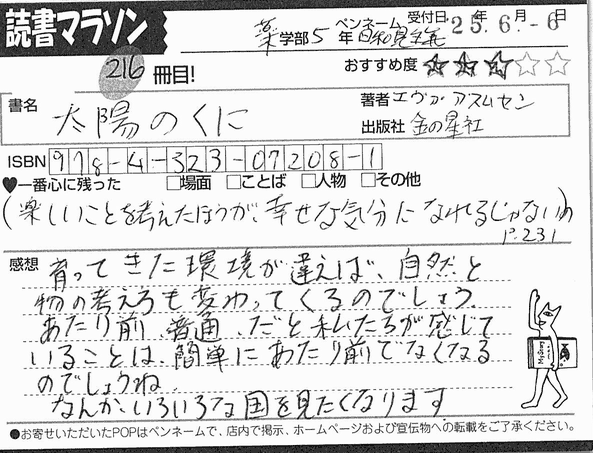 読書マラソン
薬学部5年 ペンネーム 日和見主義 受付日 25年6月-6日
216冊目!
おすすめ度 ★★★☆☆
書名 太陽のくに
著者 エヴァ アスムセン
出版社 金の星社
ISBN 978-4-323-07208-1
♥一番心に残った □場面 □ことば □人物 □その他
(楽しいことを考えたほうが、幸せな気分になれるじゃないの
P.231
感想 育ってきた環境が違えば、自然と
物の考えろも変わってくるのでしょう
あたり前、普通、だと私たちが感じて
いることは、簡単にあたり前でなくなる
のでしょうね
なんか、いろいろな国を見たくなります
●お寄せいただいたPOPはペンネームで、店内で掲示、ホームページおよび宣伝物への転載をご了承ください。